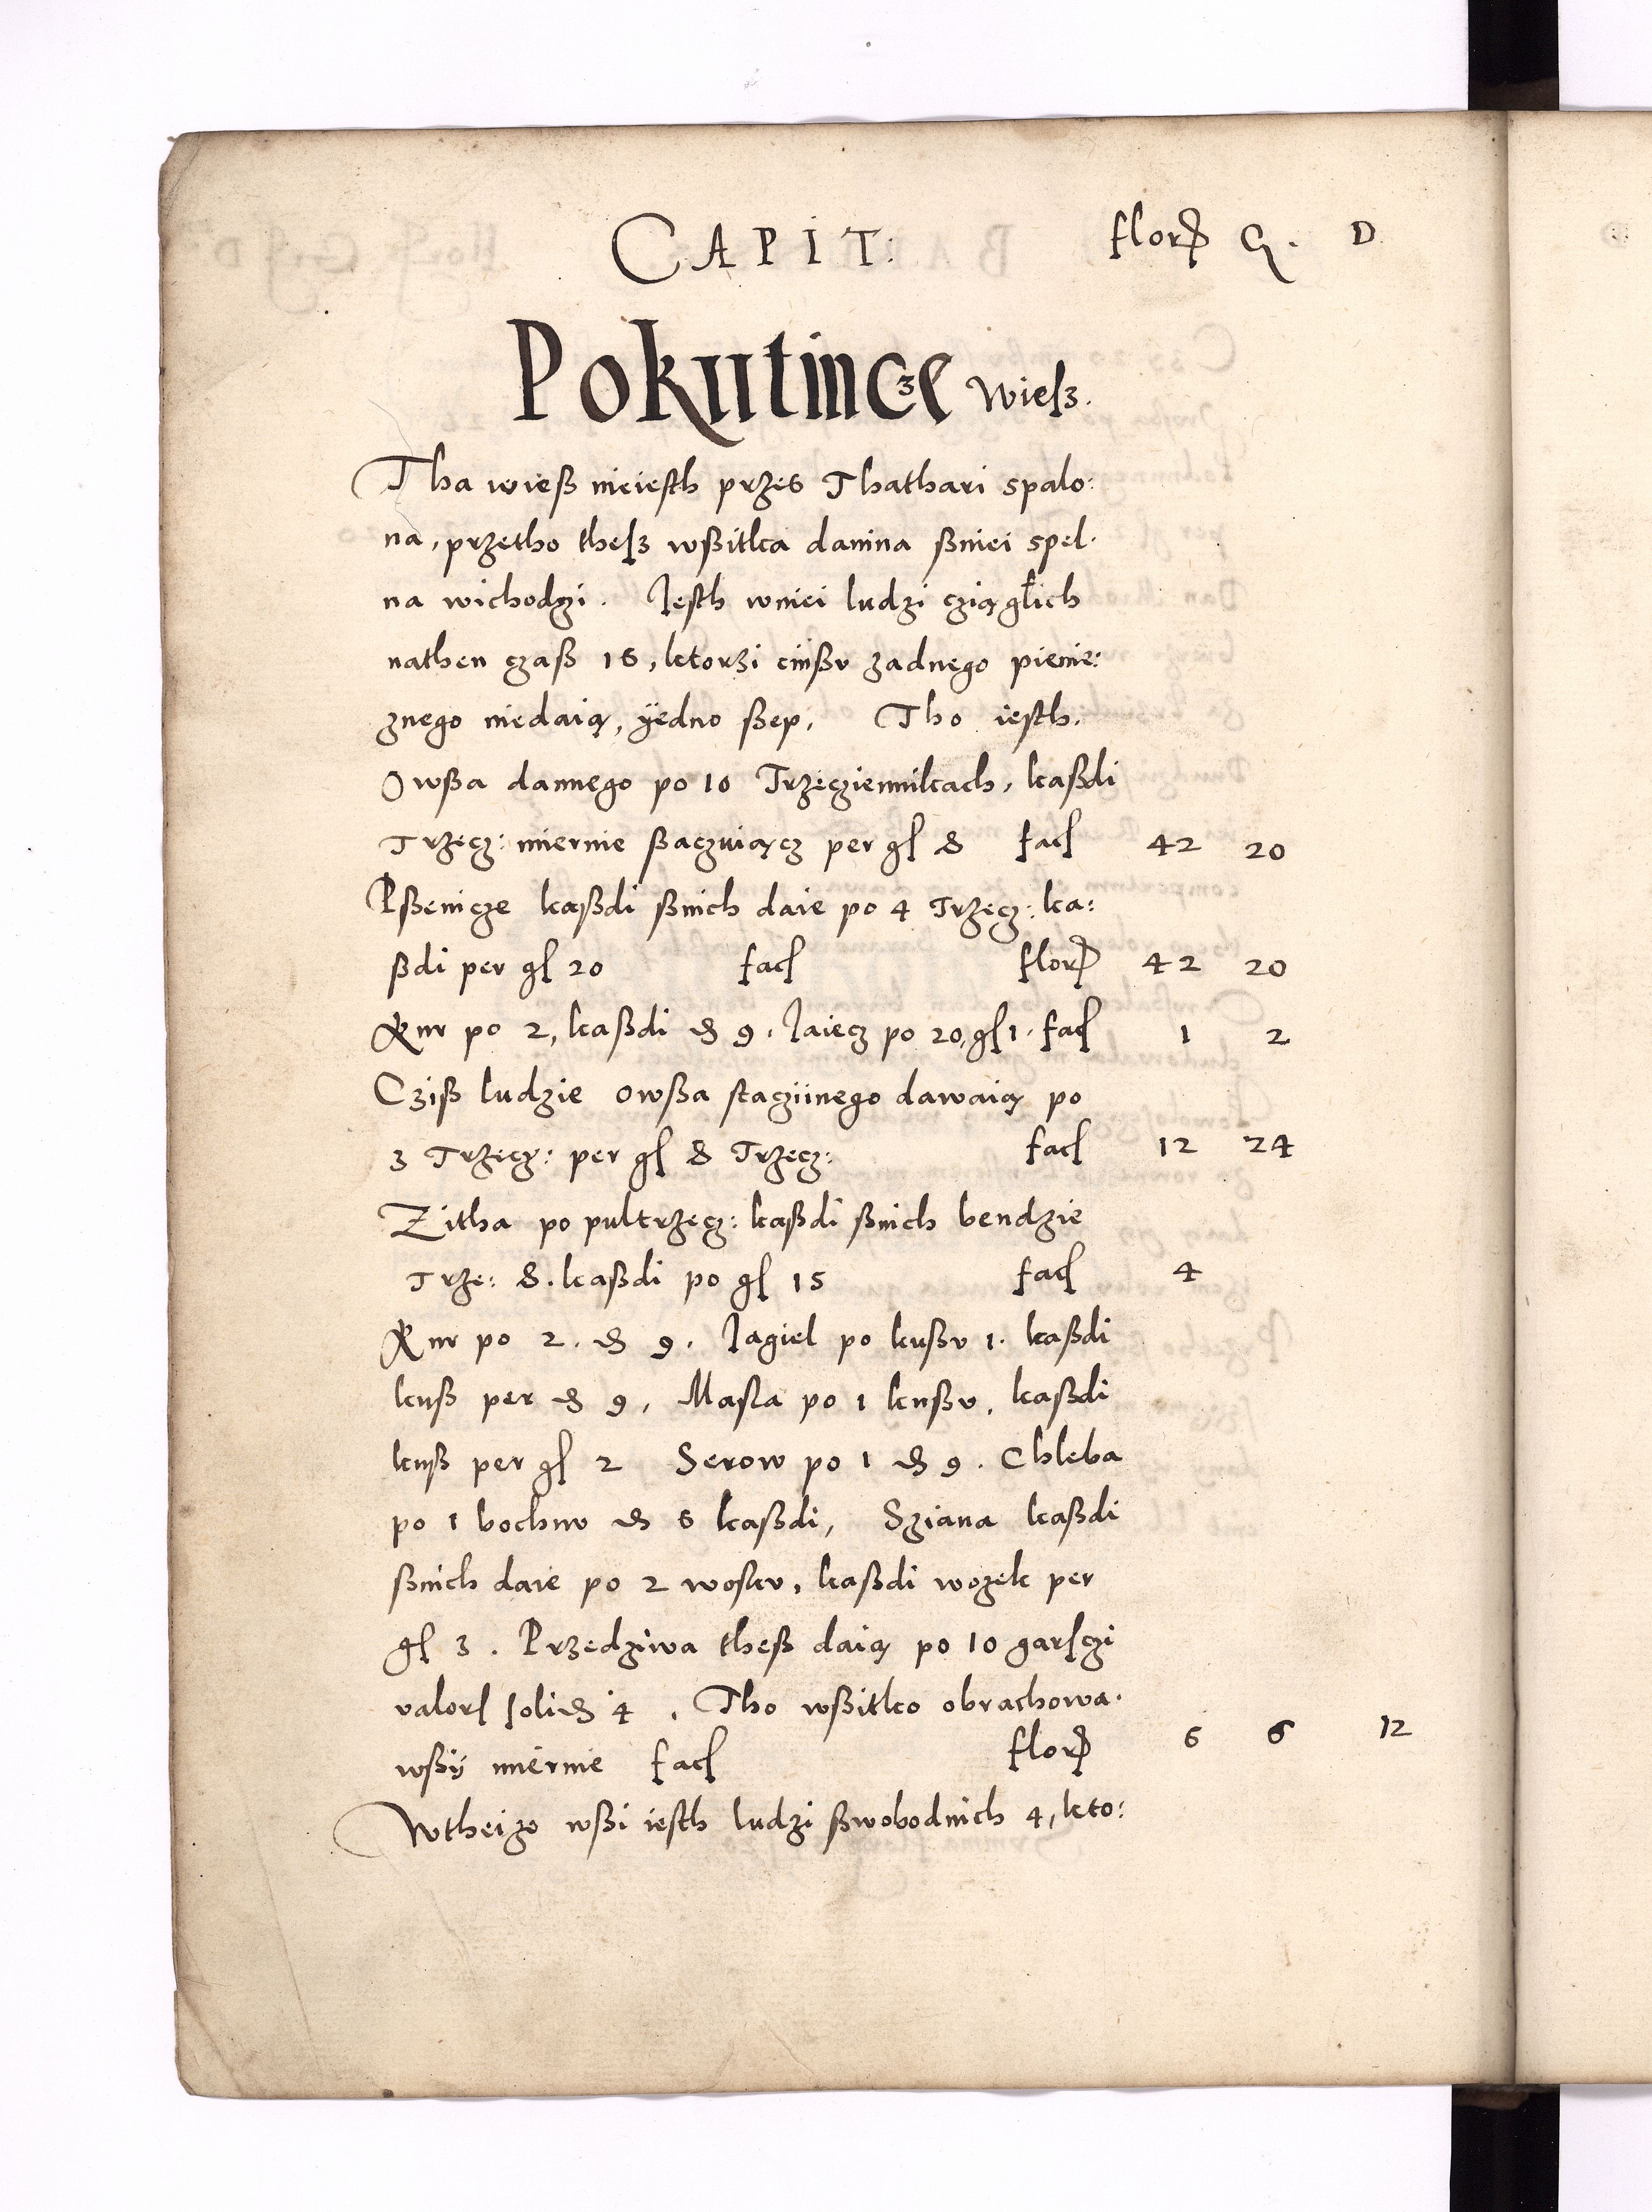 CAPIT: flor G. D
Pokutincze wiesz.
Tha wieß nieiesth przes Thathari spalo:
na, przetho thesz wßitka danina ßniei spel.
na wichodzi. Jesth wniei ludzi cziągłich
nathen czaß 16, ktorzi cinßv zadnego pienie:
znego niedaią, yedno ßep. Tho iesth.
Owßa dannego po 10 Trzecziennikach, kaßdi
Trzecz: miernie ßaczuiącz per gl 8 facl 42 20
Pßenicze kaßdi ßnich daie po 4 Trzecz: ka:
ßdi per gl 20 facl flor 42 20
Kur po 2, kaßdi d 9. Jaiecz po 20, gl 1. facl 1 2
Cziß ludzie owßa stacziinego dawaią po
3 Trzecz: per gl 8 Trzecz: facl 12 24
Zitha po pultrzecz: kaßdi ßnich bendzie
Trze: 8. kaßdi po gl 15 facl 4
Kur po 2. d 9. Jagiel po kußv 1. kaßdi
kuß per d 9, Masla po 1 kußv, kaßdi
kuß per gl 2 Serow po 1 d 9. Chleba
po 1 bochnv d 6 kaßdi, Sziana kaßdi
ßnich daie po 2 woskv, kaßdi wozek per
gl 3. Przedziwa theß daią po 10 garsczi
valorl solid 4. Tho wßitko obrachowa.
wßÿ miernie facl flor 6 6 12
Wtheizo wßi iesth ludzi ßwobodnich 4, kto: